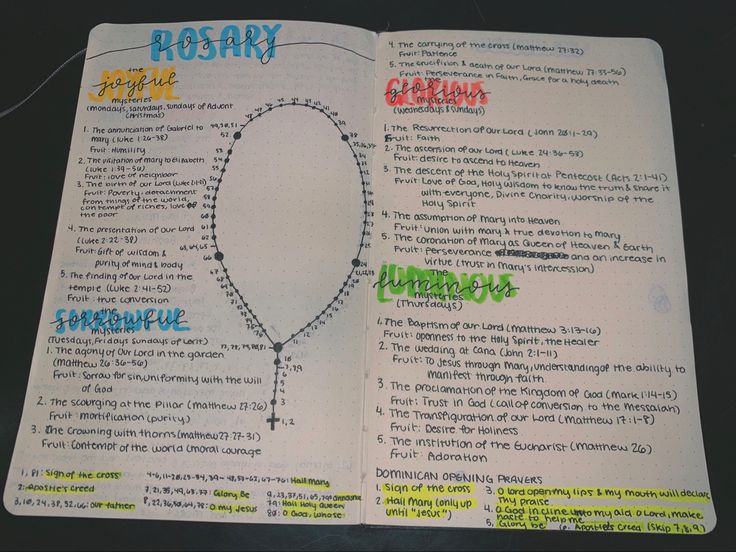 ROSARY
rosary
the
JOYFUL
joyful
mysteries
(mondays, saturdays, sundays of Advent
Christmas)
1. The annunciation of Gabriel to
mary (Luke 1:26-38)
Fruit: Humility
2. The visitation of mary to Elizabeth
(Luke 1:39-56)
Fruit: love of neighbor
3. The birth of our Lord
Fruit: Poverty, detachment
from things of the world,
contempt of riches, love of
the poor
4. The presentation of our Lord
(Luke 2:22-38)
Fruit: Gift of wisdom &
purity of mind & body
5. The finding of our Lord in the
temple (Luke 2:41-52)
Fruit: true conversion
the
SORROWFUL
sorrowful
mysteries
(Tuesdays, Fridays Sundays of Lent)
1. The agony of Our Lord in the garden
(Matthew 26:36-56)
Fruit: Sorrow for sin, uniformity with the will
of God
2. The scourging at the Pillar (Matthew 27:26)
Fruit: mortification (purity)
3. The Crowning with thorns (Matthew 27:27-31)
Fruit: Contempt of the world (moral courage
49,50,51
52
39
38
53
54
55
56
57
58
59
60
61
62
63,64,65
66
24
77,78,79,80,81
10
7,8,9
6
5
4
3
1,2
1. 81: Sign of the cross
2: Apostle's Creed
3, 10, 24, 38, 52, 66: Our father
Hail Mary
7, 21, 35, 49, 63, 77: Glory Be
8, 22, 36, 50, 64, 78: O my Jesus
9, 23, 37, 51, 65,
79: Hail Holy Queen
80: O God, whose
4. The carrying of the cross (Matthew 27:32)
Fruit: Patience
5. The crucifixion & death of our Lord (matthew 27:33-56)
Fruit: Perseverance in Faith, Grace for a holy death
the
GLORIOUS
glorious
mysteries
(Wednesdays & Sundays)
1. The Resurrection of our Lord (John 20:1-29)
Fruit: Faith
2. The ascension of our Lord (Luke 24:36-53)
Fruit: desire to ascend to Heaven
3. The descent of the Holy Spirit at Pentecost (Acts 2:1-41)
Fruit: Love of God, Holy wisdom to know the truth & share it
with everyone, Divine Charity, worship of the
Holy Spirit
4. The assumption of Mary into Heaven
Fruit: Union with mary & true devotion to mary
5. The coronation of Mary as Queen of Heaven & Earth
Fruit: perseverance and an increase in
virtue (trust in Mary's intercession)
the
LUMINOUS
luminous
mysteries
(Thursdays)
1. The Baptism of our Lord (Matthew 3:13-16)
Fruit: openness to the Holy Spirit, the Healer
2. The wedding at Cana (John 2:1-11)
Fruit: To Jesus through Mary, understanding of the ability to
manifest through faith
3. The proclamation of the Kingdom of God (Mark 1:14-15)
Fruit: Trust in God (call of conversion to the Messaiah)
4. The Transfiguration of our Lord (Matthew 17:1-8)
Fruit: Desire for Holiness
5. The institution of the Eucharist (Matthew 26)
Fruit: Adoration
DOMINICAN OPENING PRAYERS
1. Sign of the cross
2. Hail Mary (only up
until "Jesus")
3. O lord open my lips & my mouth will declare
my praise
4. O God incline unto my aid, O Lord, make
haste to help me
5. Glory be
6. Apostle's Creed (skip 7,8,9)